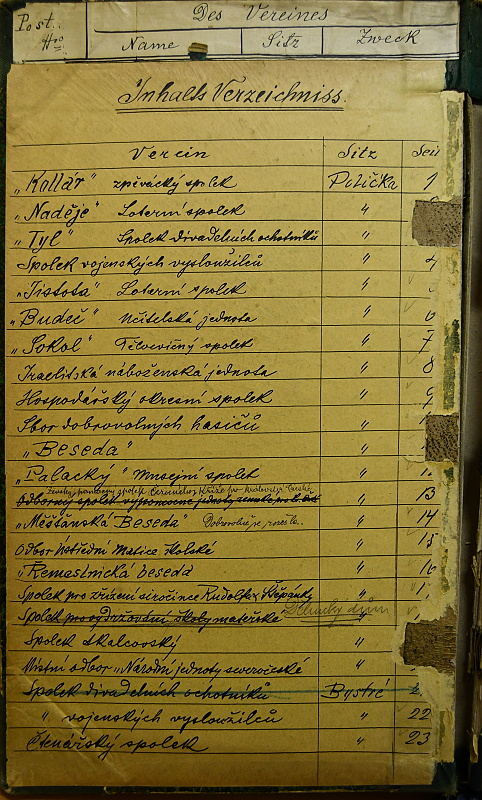 Post. Nro
Des Vereines
Name Sitz Zweck
Inhalts Verzeichniss.
Verein Sitz Seit
„Kollár" zpěvácký spolek Polička 1
„Naděje" Loterní spolek "
„Tyl" Spolek divadelních ochotníků "
Spolek vojenských vysloužilců " 4
„Jistota" Loterní spolek "
„Budeč" Učitelská jednota " 6
„Sokol" Tělocvičný spolek " 7
Israelitská náboženská jednota " 8
Hospodářský okresní spolek " 9
Sbor dobrovolných hasičů "
„Beseda" "
„Palacký" Musejní spolek "
Ženský pomocný spolek červeného kříže pro království České
Odborový spolek výpomocné jednoty " 13
„Měšťanská Beseda" Dobrovolně se rozešla. " 14
Odbor Ústřední Matice školské " 15
„Řemeslnická beseda " 16
Spolek pro zřízení sirotčince Rudolfa a Štěpánky " 1
Spolek pro vydržování školy mateřské dům "
Spolek Skalcovský "
Místní odbor „Národní jednoty severočeské "
Spolek divadelních ochotníků Bystré 2
" vojenských vysloužilců " 22
Čtenářský spolek " 23